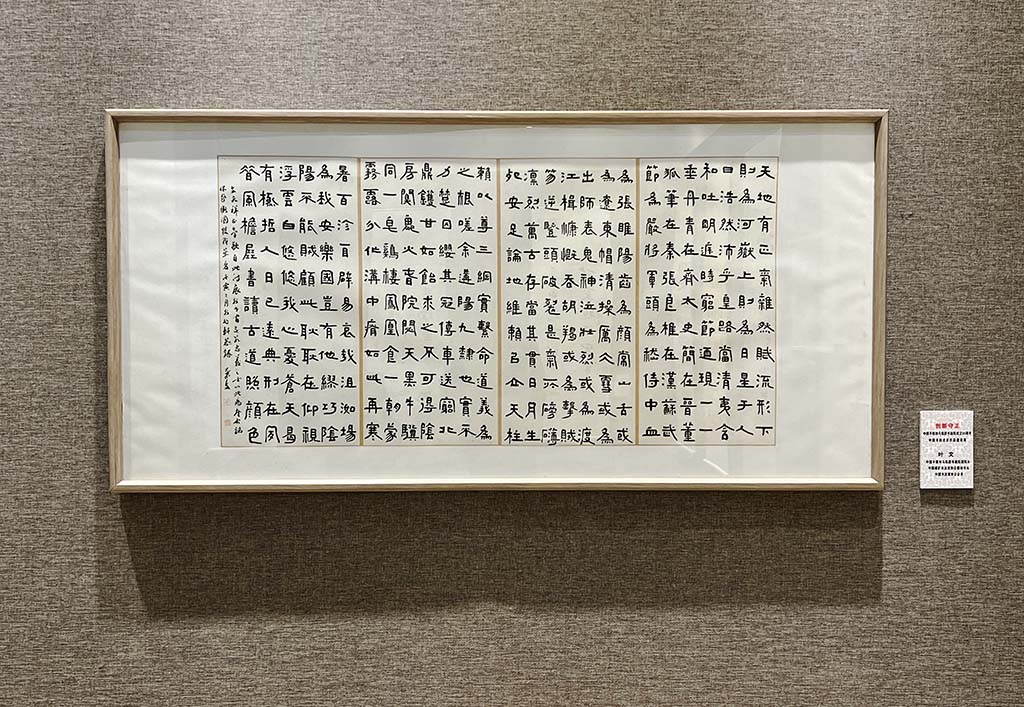 天地有正氣雜然賦流形下
則為河嶽上則為日星于人
曰浩然沛乎皇路當清夷含
和吐明廷時窮節乃現一一
垂丹青在齊太史簡在晉董
狐筆在秦張良椎在漢蘇武
節為嚴將軍頭為嵇侍中血
為張睢陽齒為顏常山舌或
為遼東帽清操厲冰雪或為
出師表鬼神泣壯烈或為渡
江楫慷慨吞胡羯或為擊賊
笏逆豎頭破裂是氣所磅礴
凜烈萬古存當其貫日月生
死安足論地維賴以立天柱
賴以尊三綱實繫命道義為
之根嗟余遘陽九隸也實不
力楚囚纓其冠傳車送窮北
鼎鑊甘如飴求之不可得陰
房闃鬼火春院閟天黑牛驥
同一皂雞棲鳳凰食一朝蒙
霧露分作溝中瘠如此再寒
暑百沴自辟易哀哉沮洳場
為我安樂國豈有他繆巧陰
陽不能賊顧此耿耿在仰視
浮雲白悠悠我心憂蒼天曷
有極哲人日已遠典刑在夙
昔風檐展書讀古道照顏色
文天祥正氣歌
创新守正
叶文